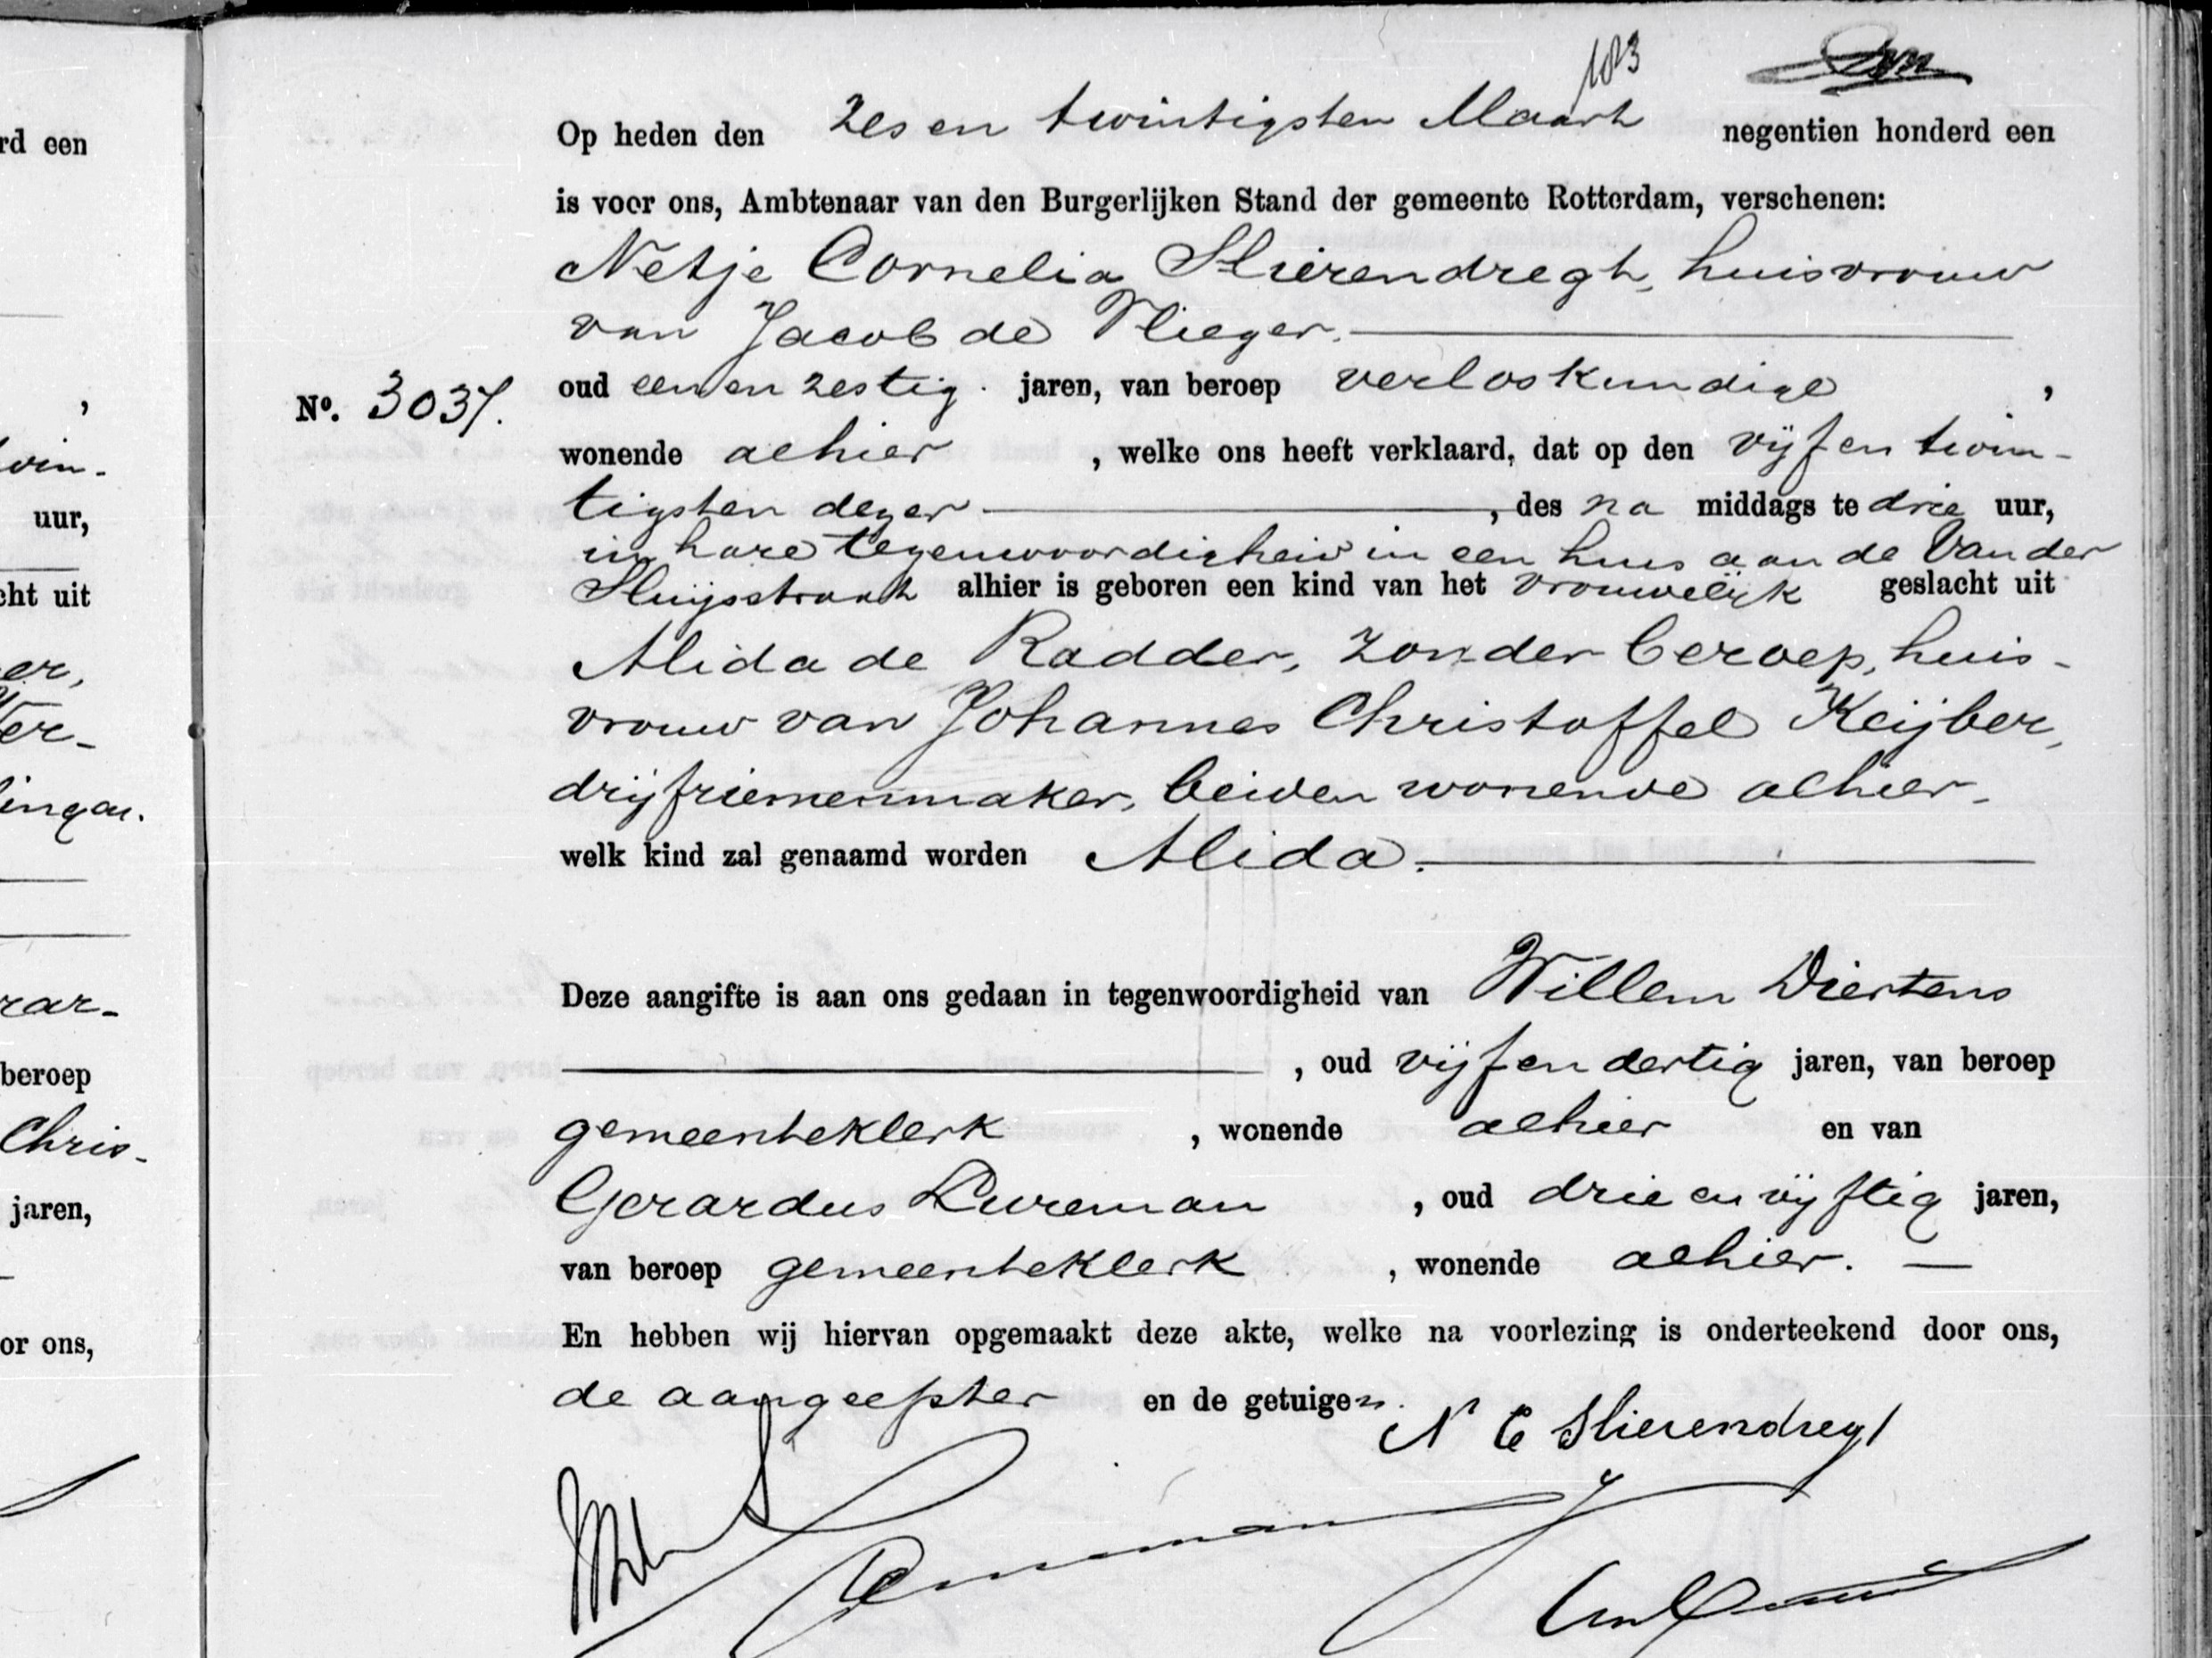 103
Op heden den zes en twintigsten Maart negentien honderd een
is voor ons, Ambtenaar van den Burgerlijken Stand der gemeente Rotterdam, verschenen:
Netje Cornelia Slierendregt, huisvrouw
van Jacob de Vlieger.
No. 3037. oud een en zestig jaren, van beroep verloskundige ,
wonende alhier , welke ons heeft verklaard, dat op den vijf en twin-
tigsten dezer , des na middags te drie uur,
in hare tegenwoordigheid in een huis aan de Van der
Sluijsstraat alhier is geboren een kind van het vrouwelijk geslacht uit
Alida de Radder, zonder beroep, huis-
vrouw van Johannes Christoffel Keijber,
drijfriemenmaker, beiden wonende alhier,
welk kind zal genaamd worden Alida.
Deze aangifte is aan ons gedaan in tegenwoordigheid van Willem Diertens
, oud vijf en dertig jaren, van beroep
gemeenteklerk , wonende alhier en van
Gerardus Lureman , oud drie en vijftig jaren,
van beroep gemeenteklerk , wonende alhier.
En hebben wij hiervan opgemaakt deze akte, welke na voorlezing is onderteekend door ons,
de aangeefster en de getuigen.
N C Slierendregt
rd een
,
win-
uur,
cht uit
er,
er-
rar-
beroep
Chris-
jaren,
or ons,